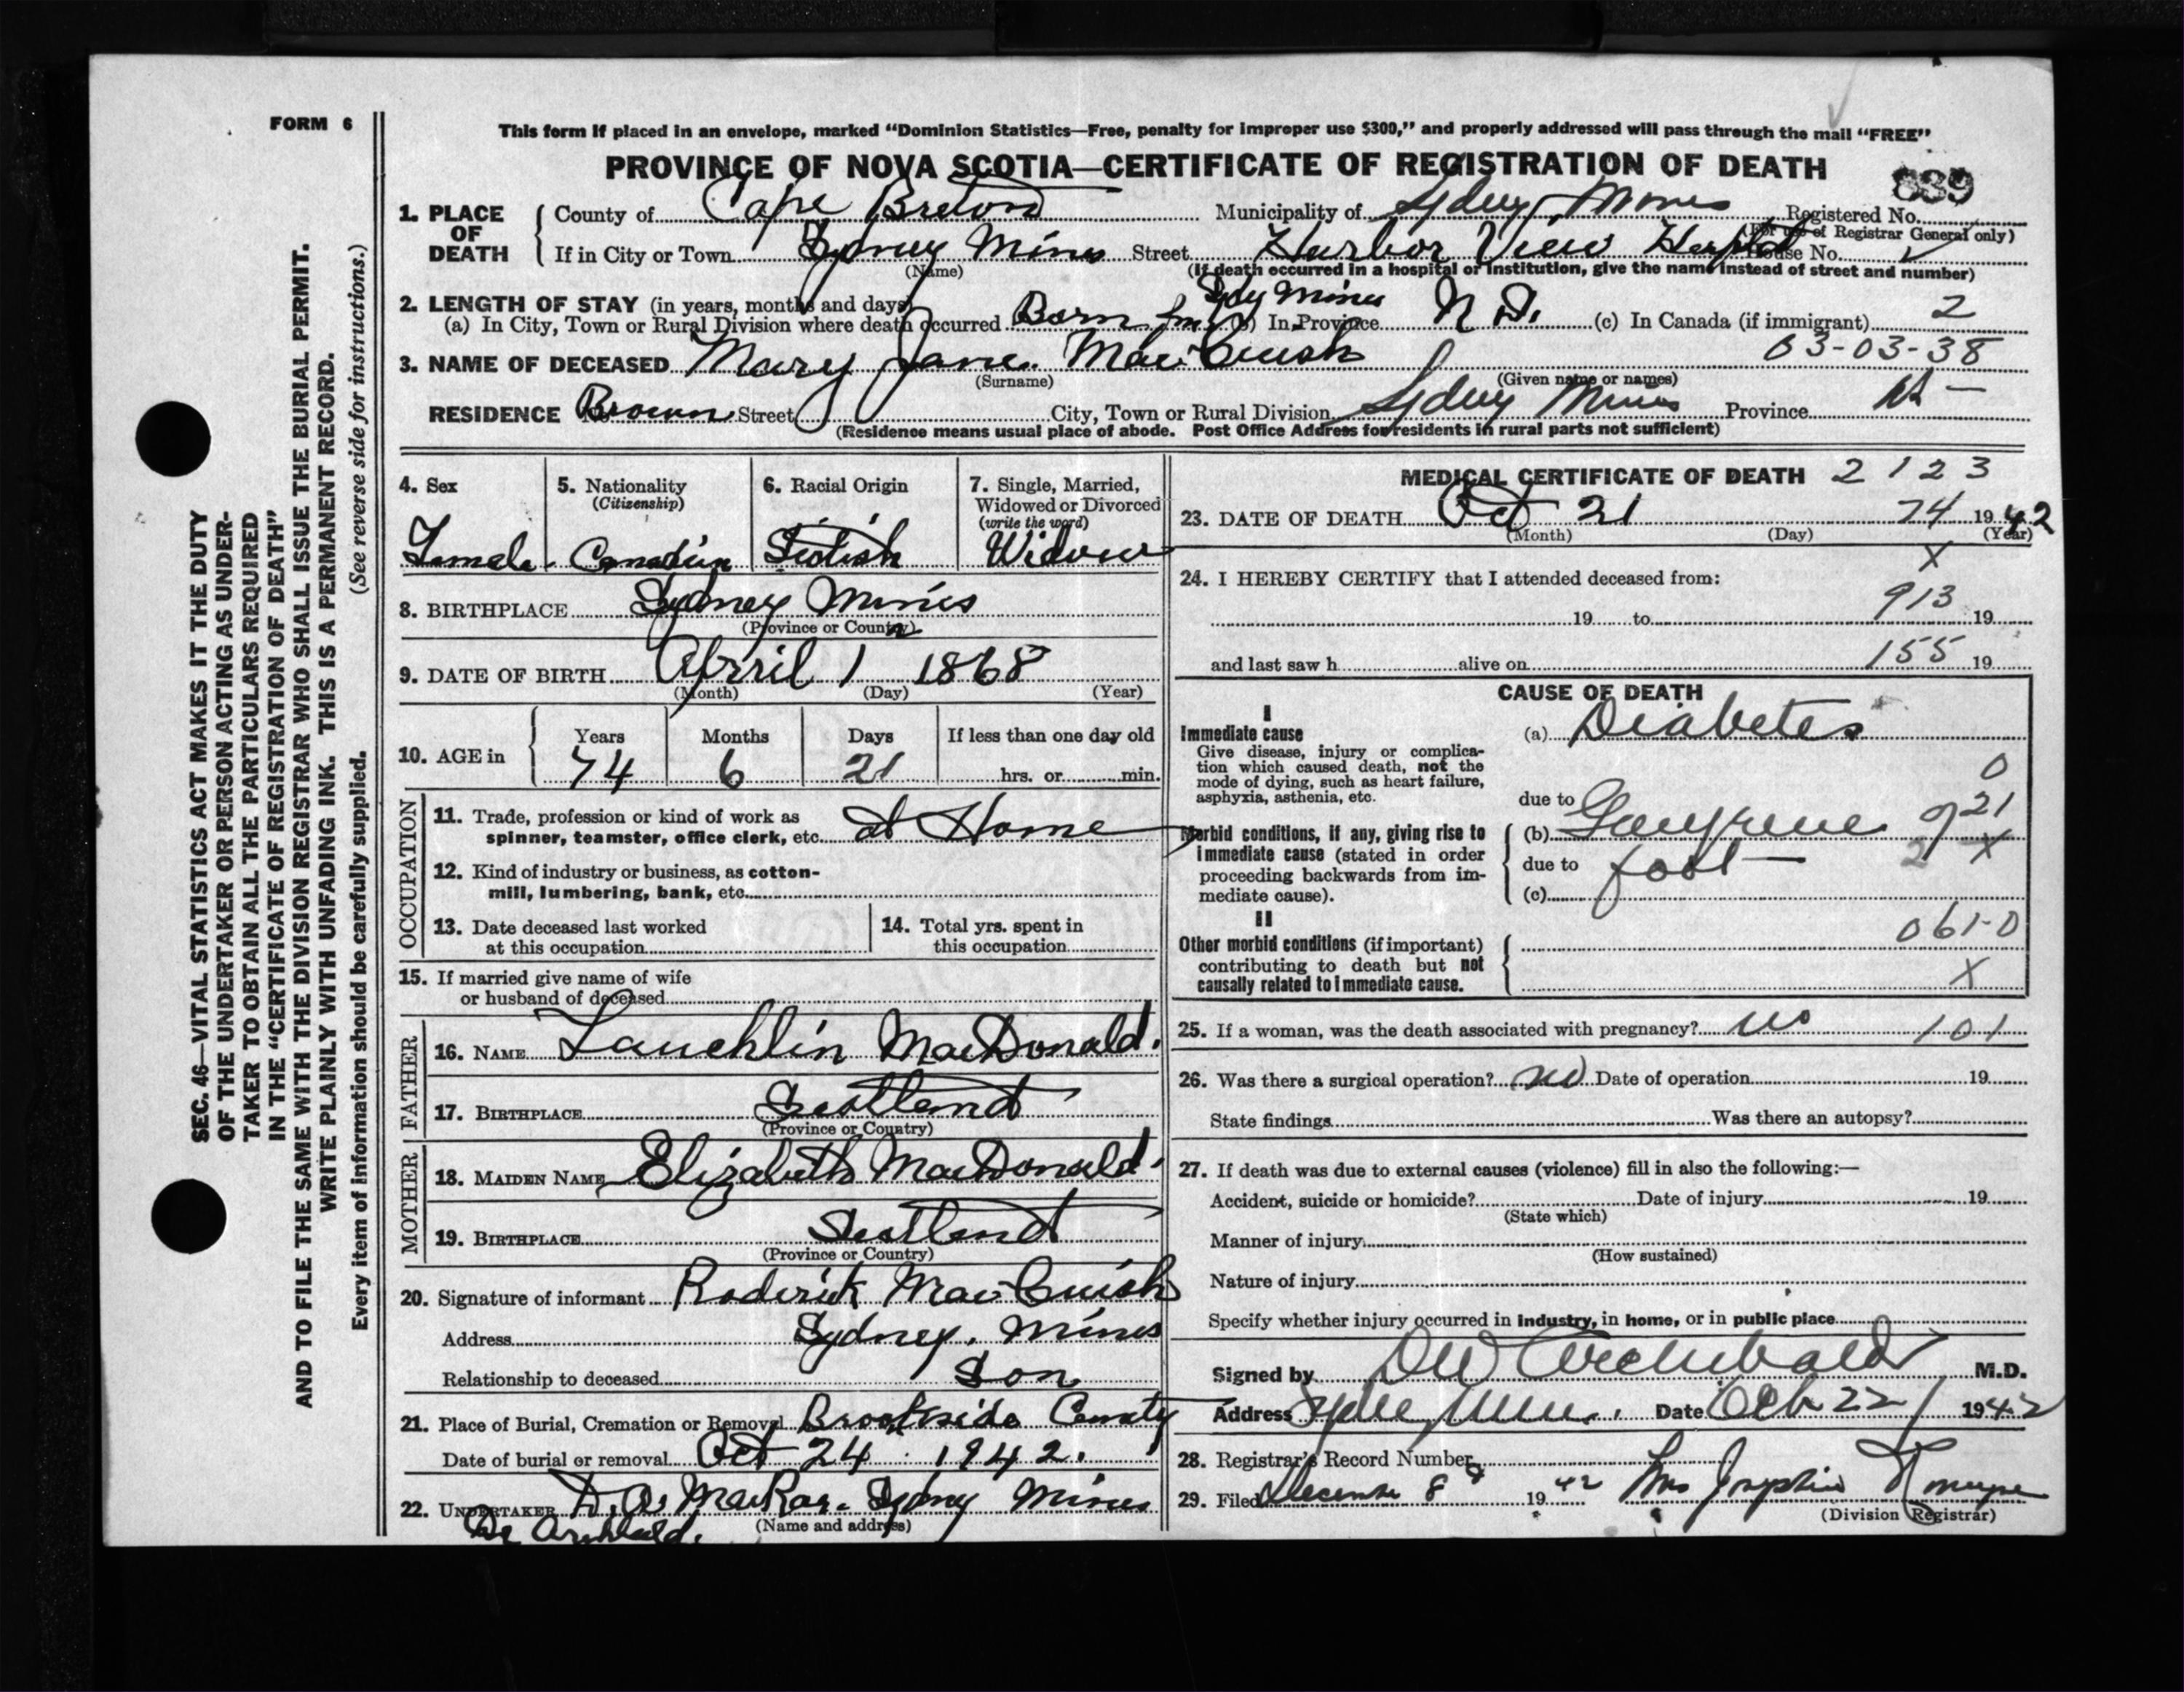 FORM 6
This form if placed in an envelope, marked "Dominion Statistics—Free, penalty for improper use $300," and properly addressed will pass through the mail "FREE"
PROVINCE OF NOVA SCOTIA—CERTIFICATE OF REGISTRATION OF DEATH
839
1. PLACE OF DEATH
County of Cape Breton Municipality of Sydney Mines Registered No.
(For use of Registrar General only)
If in City or Town Sydney Mines Street Harbor View Hospital House No.
(Name) (If death occurred in a hospital or institution, give the name instead of street and number)
2. LENGTH OF STAY (in years, months and days)
(a) In City, Town or Rural Division where death occurred Born in Sdy Mines (b) In Province N S. (c) In Canada (if immigrant) 2
3. NAME OF DECEASED Mary Jane MacCuish 03-03-38
(Surname) (Given name or names)
RESIDENCE No. Brown Street City, Town or Rural Division Sydney Mines Province NS
(Residence means usual place of abode. Post Office Address for residents in rural parts not sufficient)
4. Sex Female
5. Nationality (Citizenship) Canadian
6. Racial Origin Scotish
7. Single, Married, Widowed or Divorced (write the word) Widow
8. BIRTHPLACE Sydney Mines
(Province or Country)
9. DATE OF BIRTH April 1 1868
(Month) (Day) (Year)
10. AGE in Years 74 Months 6 Days 21 If less than one day old hrs. or min.
OCCUPATION
11. Trade, profession or kind of work as spinner, teamster, office clerk, etc. at Home
12. Kind of industry or business, as cotton-mill, lumbering, bank, etc.
13. Date deceased last worked at this occupation
14. Total yrs. spent in this occupation
15. If married give name of wife or husband of deceased
FATHER
16. NAME Lauchlin MacDonald.
17. BIRTHPLACE Scotland
(Province or Country)
MOTHER
18. MAIDEN NAME Elizabeth MacDonald.
19. BIRTHPLACE Scotland
(Province or Country)
20. Signature of informant Roderick MacCuish
Address Sydney. Mines
Relationship to deceased Son
21. Place of Burial, Cremation or Removal Brookside Cemety
Date of burial or removal Oct 24 1942.
22. UNDERTAKER D. A. MacRae. Sydney Mines
(Name and address)
Dr Archibald.
MEDICAL CERTIFICATE OF DEATH 2 1 2 3
23. DATE OF DEATH Oct 21 74 1942
(Month) (Day) (Year)
X
24. I HEREBY CERTIFY that I attended deceased from:
913
19 to 19
and last saw h alive on 155 19
CAUSE OF DEATH
I
Immediate cause
Give disease, injury or complication which caused death, not the mode of dying, such as heart failure, asphyxia, asthenia, etc.
(a) Diabetes
0
due to
21
Morbid conditions, if any, giving rise to immediate cause (stated in order proceeding backwards from immediate cause).
(b) Gangrene of
due to foot 2 X
(c)
II
Other morbid conditions (if important) contributing to death but not causally related to immediate cause.
061-0
X
25. If a woman, was the death associated with pregnancy? no 101
26. Was there a surgical operation? no Date of operation 19
State findings Was there an autopsy?
27. If death was due to external causes (violence) fill in also the following:—
Accident, suicide or homicide? Date of injury 19
(State which)
Manner of injury
(How sustained)
Nature of injury
Specify whether injury occurred in industry, in home, or in public place
Signed by DW Archibald M.D.
Address Sydney Mines. Date Oct 22 1942
28. Registrar's Record Number
29. Filed December 8 1942 Mrs
(Division Registrar)
SEC. 46—VITAL STATISTICS ACT MAKES IT THE DUTY
OF THE UNDERTAKER OR PERSON ACTING AS UNDER-
TAKER TO OBTAIN ALL THE PARTICULARS REQUIRED
IN THE "CERTIFICATE OF REGISTRATION OF DEATH"
AND TO FILE THE SAME WITH THE DIVISION REGISTRAR WHO SHALL ISSUE THE BURIAL PERMIT.
WRITE PLAINLY WITH UNFADING INK. THIS IS A PERMANENT RECORD.
Every item of information should be carefully supplied. (See reverse side for instructions.)